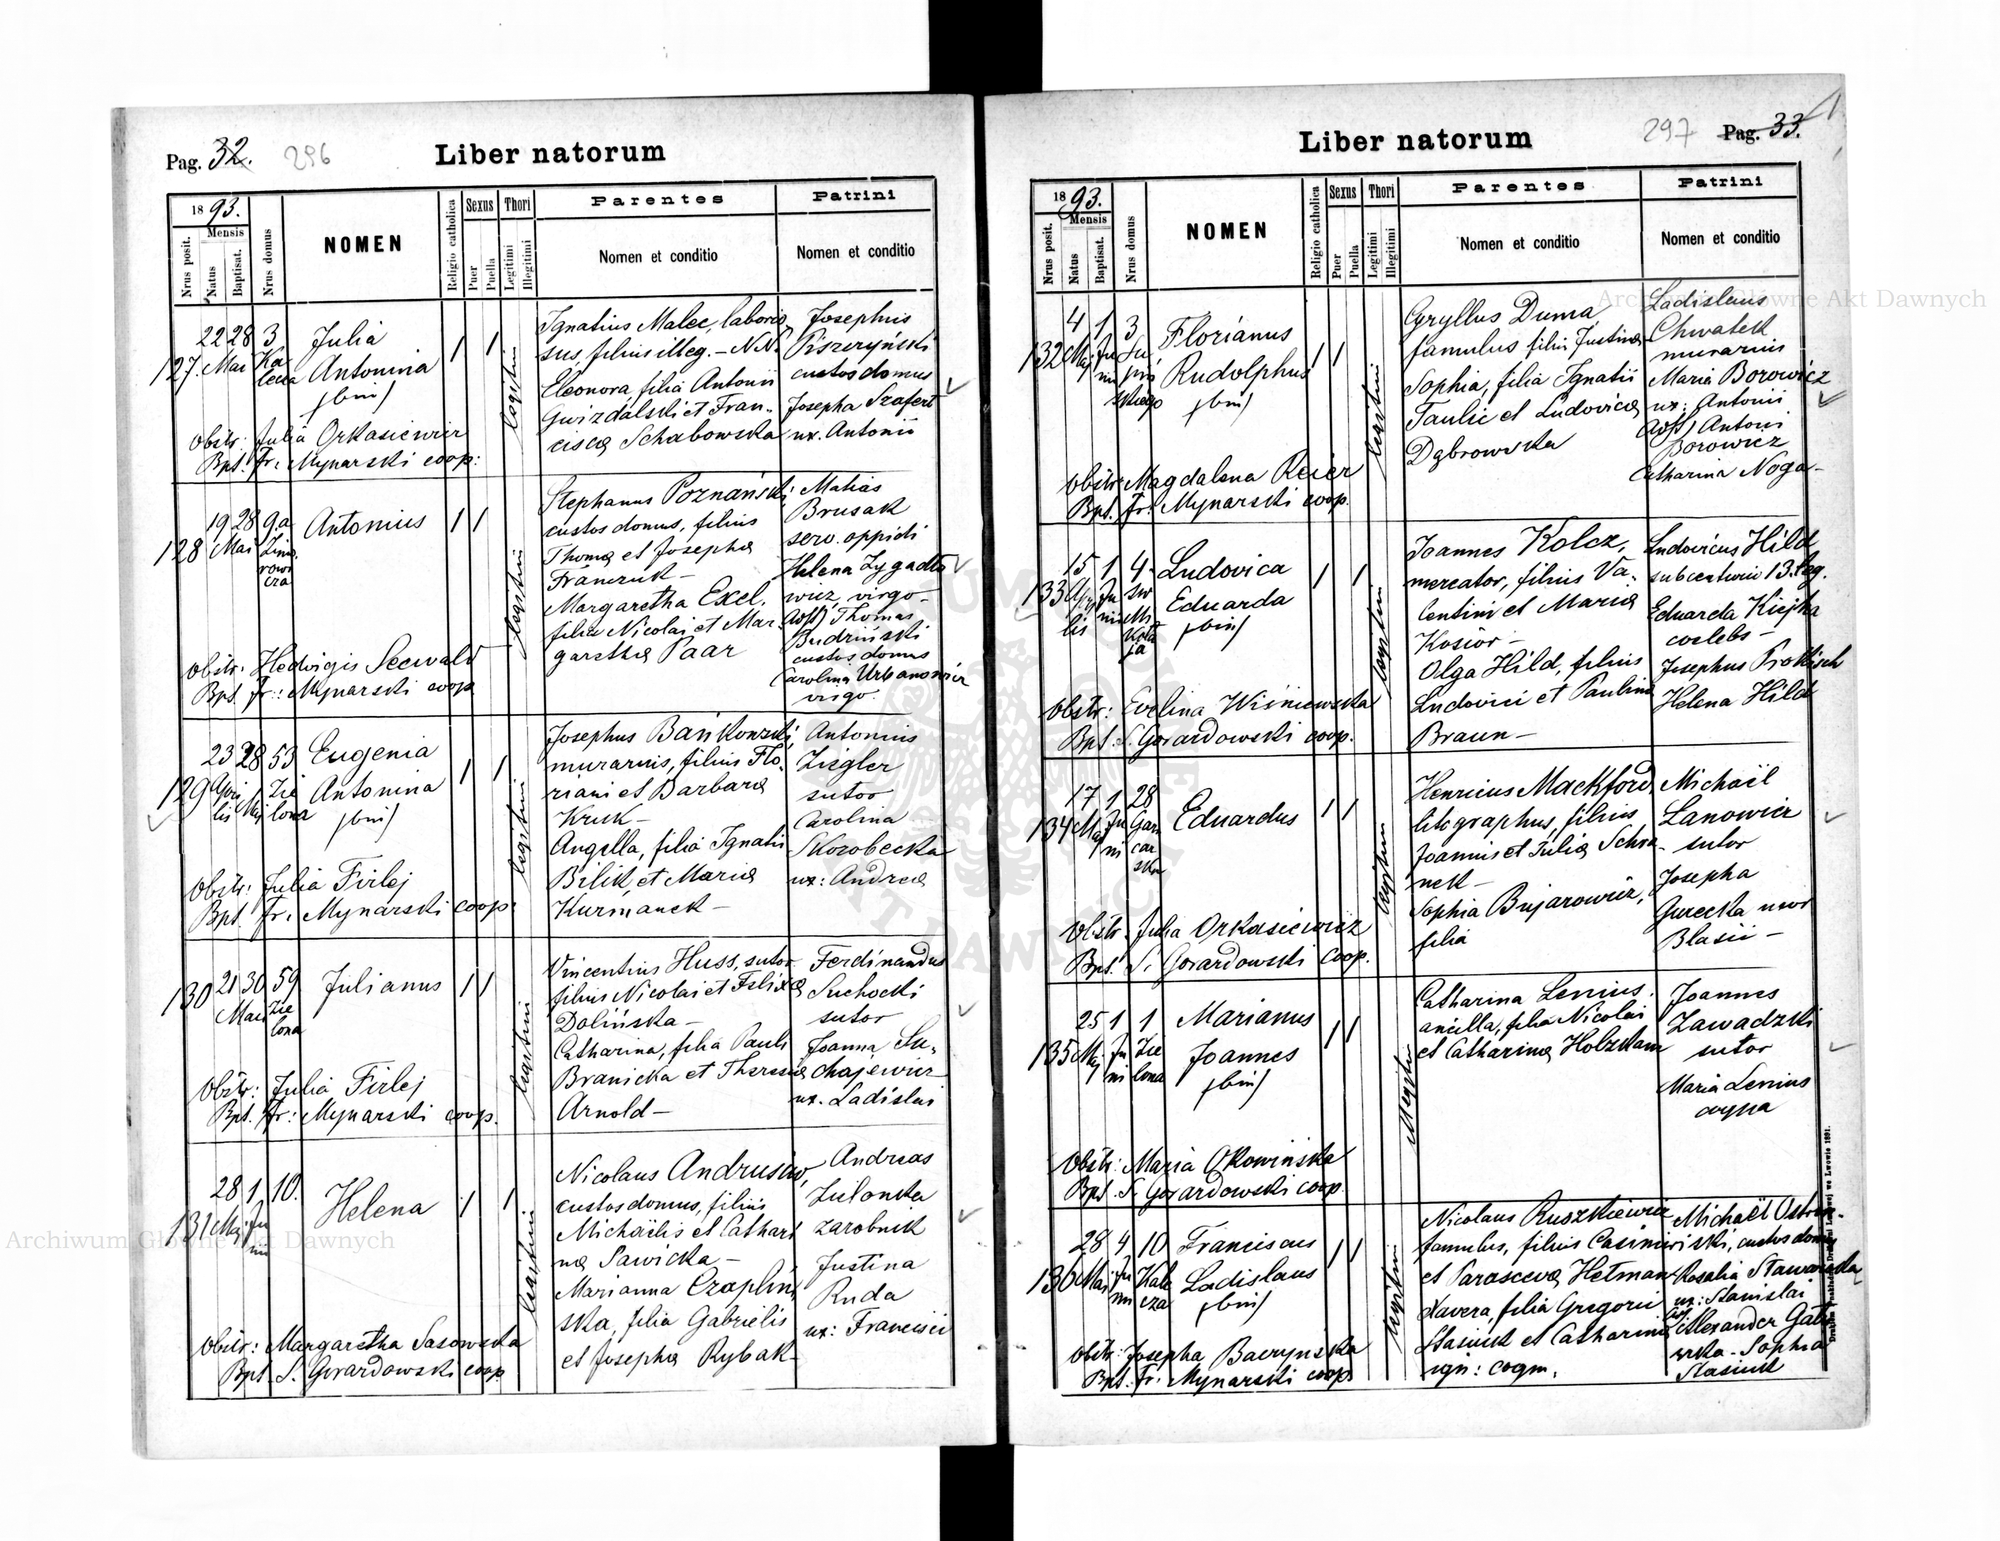 Pag. 32. 296
Liber natorum
1893.
Mensis
Nrus posit.
Natus
Baptisat.
Nrus domus
NOMEN
Religio catholica
Sexus
Puer
Puella
Thori
Legitimi
Illegitimi
Parentes
Nomen et conditio
Patrini
Nomen et conditio
127. 22 Mai 28 3 Kalecza
Julia
Antonina
(bin)
1 1
legitimi
Ignatius Malec, laborio
sus, filius illeg. - N.N.
Eleonora, filia Antonii
Gwizdalski et Fran-
cisca Schabowska
Josephus
Piszczyński
custos domus
Josepha Szafert
ux. Antonii
Obstr: Julia Orkasiewicz
Bpt. Fr: Mynarski coop:
128 19 28 9.a
Mai
Antonius
1 1
legitimi
Stephanus Poznański,
custos domus, filius
Thomæ et Josephæ
Franczuk -
Margaretha Excel,
filia Nicolai et Mar-
garethæ Paar
Mathias
Brusak
serv. oppidi
Helena Zygadło
wicz, virgo -
Ass) Thomas
Budziński
custos domus
Carolina Urbanowicz
virgo.
Obstr: Hedvigis Seewald
Bpt. Fr: Mynarski coop
129 23 Aprilis 28 Maj 53 Zielona
Eugenia
Antonina
(bin)
1 1
legitimi
Josephus Bańkowski,
murarius, filius Flo-
riani et Barbara
Kruk -
Angella, filia Ignatii
Bilik, et Maria
Kurmanek -
Antonius
Ziegler
sutor
Carolina
Skorobecka
ux: Andreæ
Obstr: Julia Firlej
Bpt. Fr. Mynarski coop.
130 21 30 59
Mai Zielona
Julianus
1 1
legitimi
Vincentius Huss, sutor
filius Nicolai et Felixæ
Dolińska -
Catharina, filia Pauli
Branicka et Theresiæ
Arnold -
Ferdinandus
Suchocki
sutor
Joanna Su-
chajewicz
ux. Ladislai
Obstr: Julia Firlej
Bpt. Fr: Mynarski coop.
131 28 Maj 1 Juni 10.
Helena
1 1
legitimi
Nicolaus Andrusiw,
custos domus, filius
Michaëlis et Cathari
næ Sawicka -
Marianna Czaplin
ska, filia Gabrielis
et Josephæ Rybak -
Andreas
Zulonka
zarobnik
Justina
Ruda
ux: Francisci
Obstr: Margaretha Sasowska
Bpt. S. Gorardowski coop
Liber natorum
297 Pag. 33.
1893.
Mensis
Nrus posit.
Natus
Baptisat.
Nrus domus
NOMEN
Religio catholica
Sexus
Puer
Puella
Thori
Legitimi
Illegitimi
Parentes
Nomen et conditio
Patrini
Nomen et conditio
132 4 Maj 1 Juni 3
Florianus
Rudolphus
(bin)
1 1
legitimi
Cyryllus Duma,
famulus filius Justinæ
Sophia, filia Ignatii
Paulic et Ludovicæ
Dąbrowska
Ladislaus
Chwatek
murarius
Maria Borowicz
ux: Antonii
Ass) Antoni
Borowicz
Catharina Noga -
Obstr: Magdalena Reier
Bpt. Fr: Mynarski coop.
133 15 Aprilis 1 Juni 4. Sw Mikołaja
Ludovica
Eduarda
(bin)
1 1
legitimi
Joannes Kolcz,
mercator, filius Va-
lentini et Mariæ
Kosior -
Olga Hild, filius
Ludovici et Paulinæ
Braun -
Ludovicus Hild
subcenturio 13. reg.
Eduarda Kiejka
coelebs -
Josephus Protkisch
Helena Hild
Obstr: Evelina Wiśniewska
Bpt. S. Gorardowski coop.
134 17 Maj 1 Juni 28 Garncarska
Eduardus
1 1
legitimi
Henricus Mackford
litographus, filius
Joannis et Juliæ Schra-
nek -
Sophia Bujarowicz,
filia
Michaël
Lanowicz
sutor
Josepha
Gurecka uxor
Blasii -
Obstr. Julia Orkasiewicz
Bpt. S. Gorardowski coop.
135 25 Maj 1 Juni 1 Zielona
Marianus
Joannes
(bin)
1 1
illegitim
Catharina Lenius,
ancilla, filia Nicolai
et Catharinæ Holzkam
Joannes
Zawadzki
sutor
Maria Lenius
Obstr: Maria Okowińska
Bpt. S. Gorardowski coop
136 28 Mai 4 Juni 10 Kalecza
Franciscus
Ladislaus
(bin)
1 1
legitimi
Nicolaus Ruszkiewicz
famulus, filius Casimiri
et Parascevæ Hetman
Xavera, filia Gregorii
Stasiuk et Catharinæ
ign: cogn.
Michaël Ostrow-
ski, custos domus
Rosalia Stawarska
ux: Stanislai
Ass) Alexander Gab
Sophia
Stasiuk
Obstr: Josepha Baczynska
Bpt. Fr. Mynarski coop
Archiwum Główne Akt Dawnych
Archiwum Główne Akt Dawnych